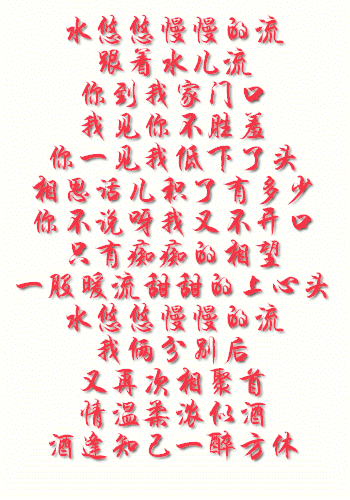 水悠悠慢慢的流
跟着水儿流
你到我家门口
我见你不胜羞
你一见我低下了头
相思话儿积了有多少
你不说呀我又不开口
只有痴痴的相望
一股暖流甜甜的上心头
水悠悠慢慢的流
我俩分别后
又再次相聚首
情温柔浓似酒
酒逢知己一醉方休